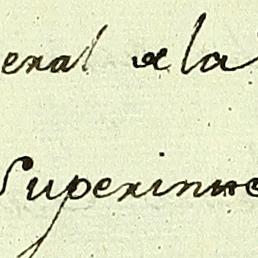 eral de la
Superinte